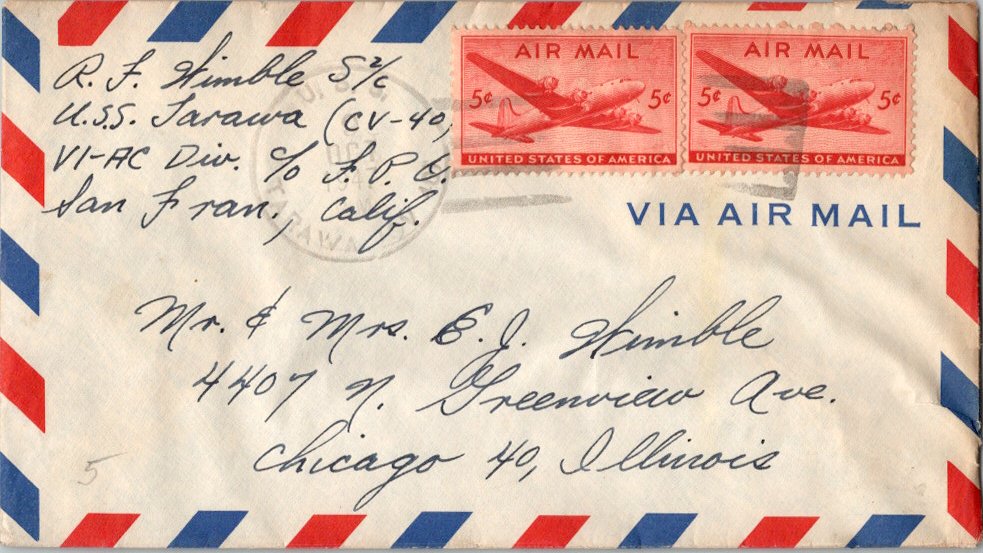 R. F. Wimble S 2/c
U.S.S. Tarawa (CV-40)
VI-AC Div. c/o F. P. O.
San Fran., Calif.
AIR MAIL
5¢ 5¢
UNITED STATES OF AMERICA
AIR MAIL
5¢ 5¢
UNITED STATES OF AMERICA
U. S. S.
TARAWA
VIA AIR MAIL
Mr. & Mrs. E. J. Wimble
4407 N. Greenview Ave.
Chicago 40, Illinois
5